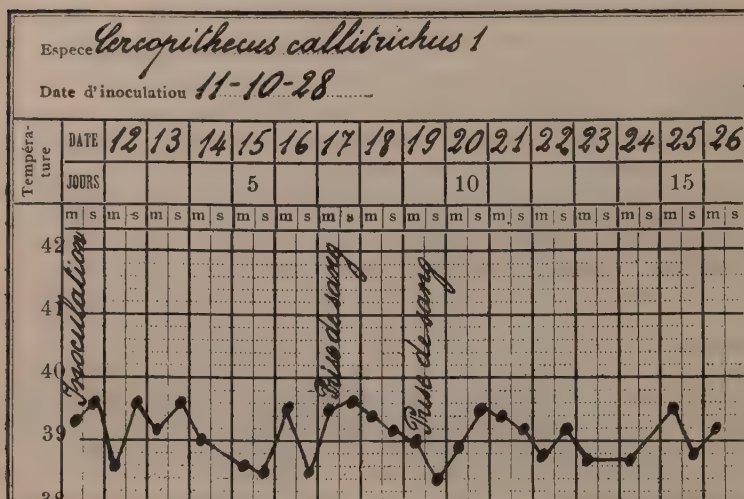 Espece Cercopithecus callitrichus 1
Date d'inoculation 11-10-28
Tempéra-
ture
DATE 12 13 14 15 16 17 18 19 20 21 22 23 24 25 26
JOURS 5 10 15
m s m s m s m s m s m s m s m s m s m s m s m s m s m s m s m s
42
41
40
39
38
Inoculation
Prise de sang
Prise de sang